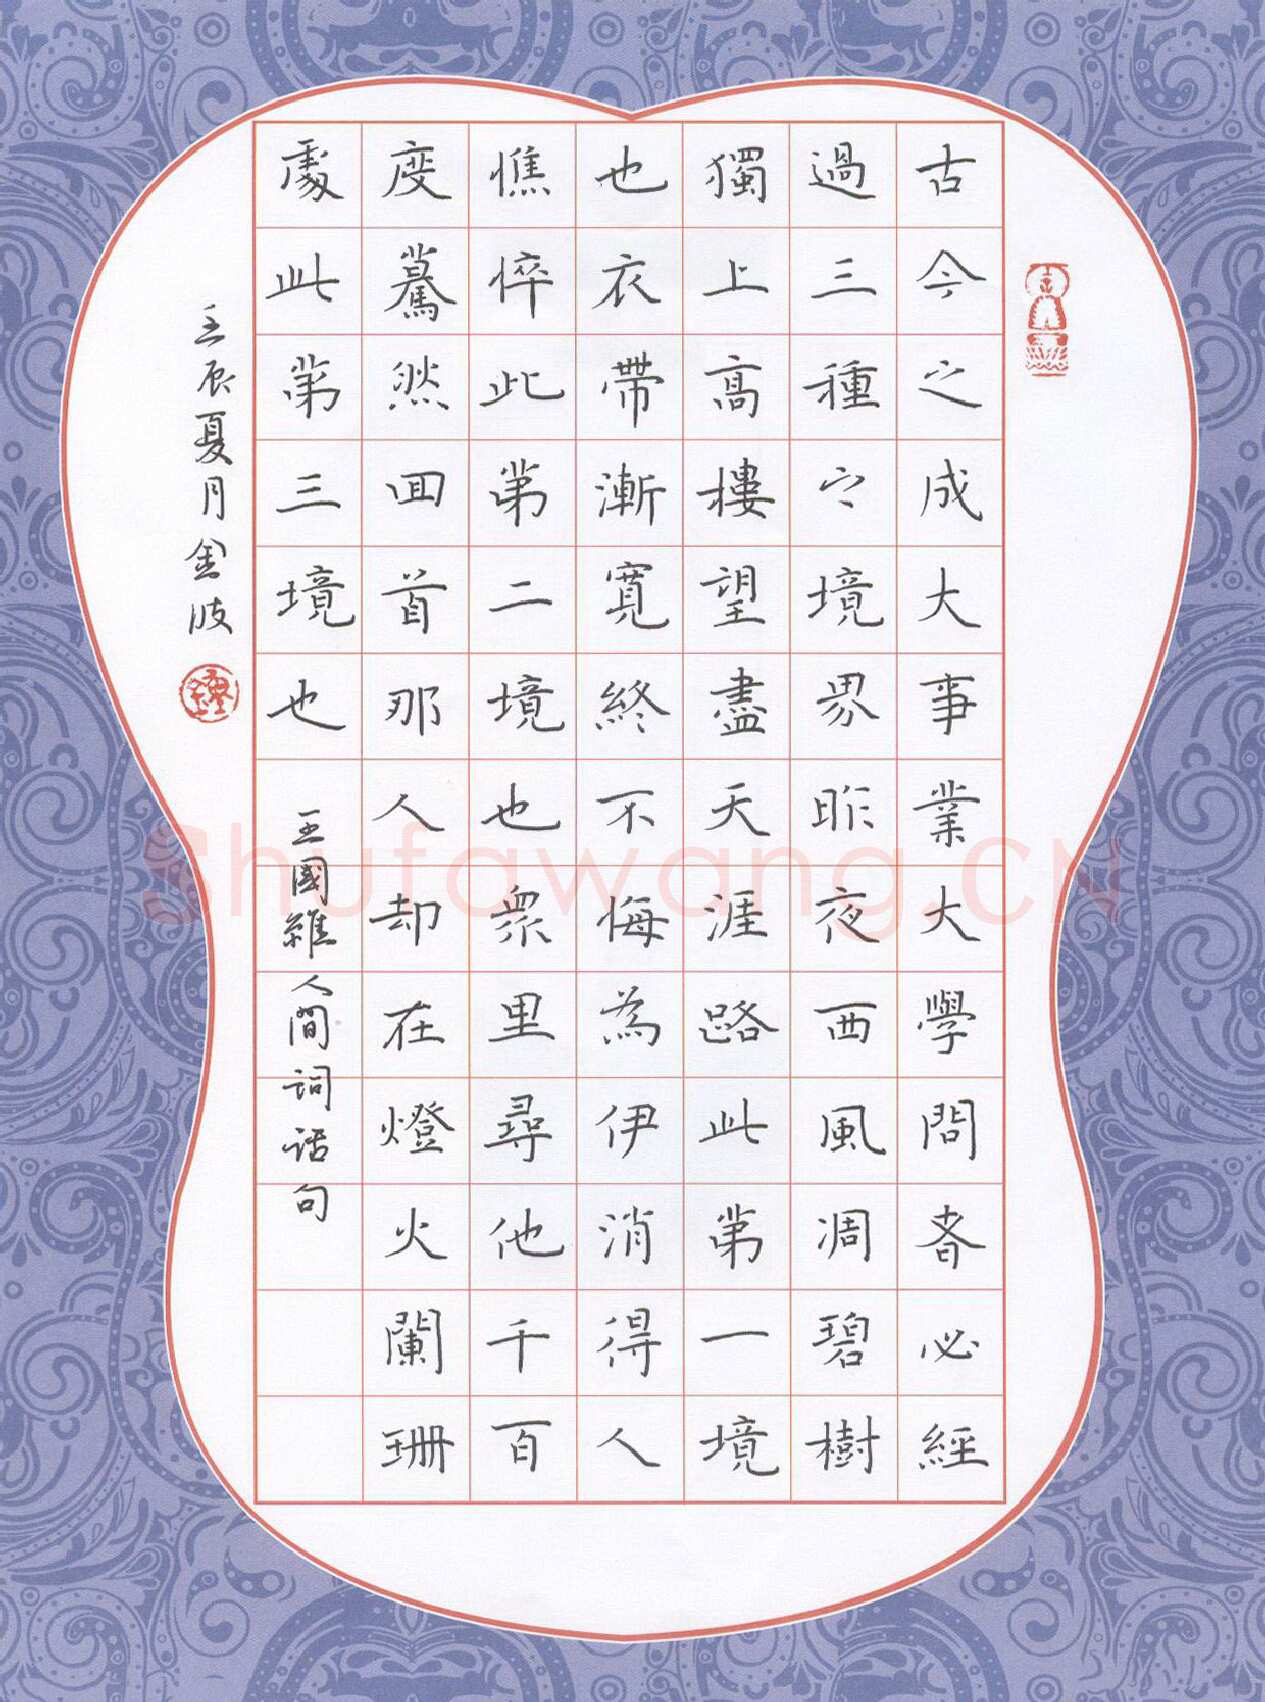 古今之成大事業大學問者必經
過三種之境界昨夜西風凋碧樹
獨上高樓望盡天涯路此第一境
也衣帶漸寬終不悔為伊消得人
憔悴此第二境也眾里尋他千百
度驀然回首那人却在燈火闌珊
處此第三境也
王國維人間词话句
壬辰夏月金波
Shufawang.CN